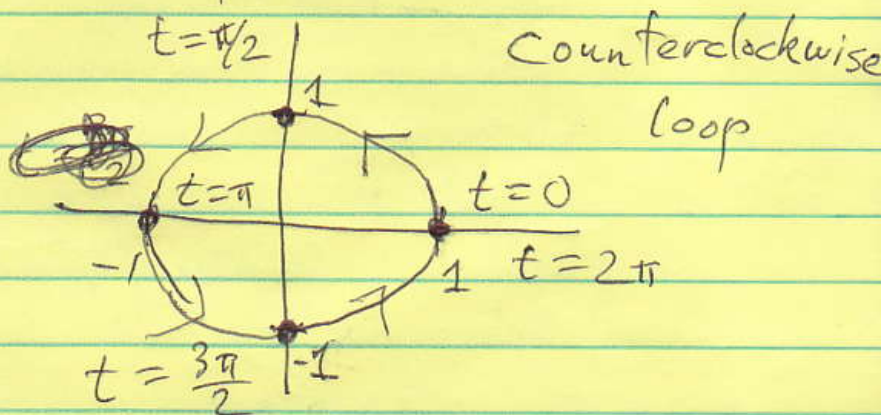 t=π/2
Counterclockwise
loop
1
t=π
t=0
-1
1
t=2π
t = 3π/2
-1